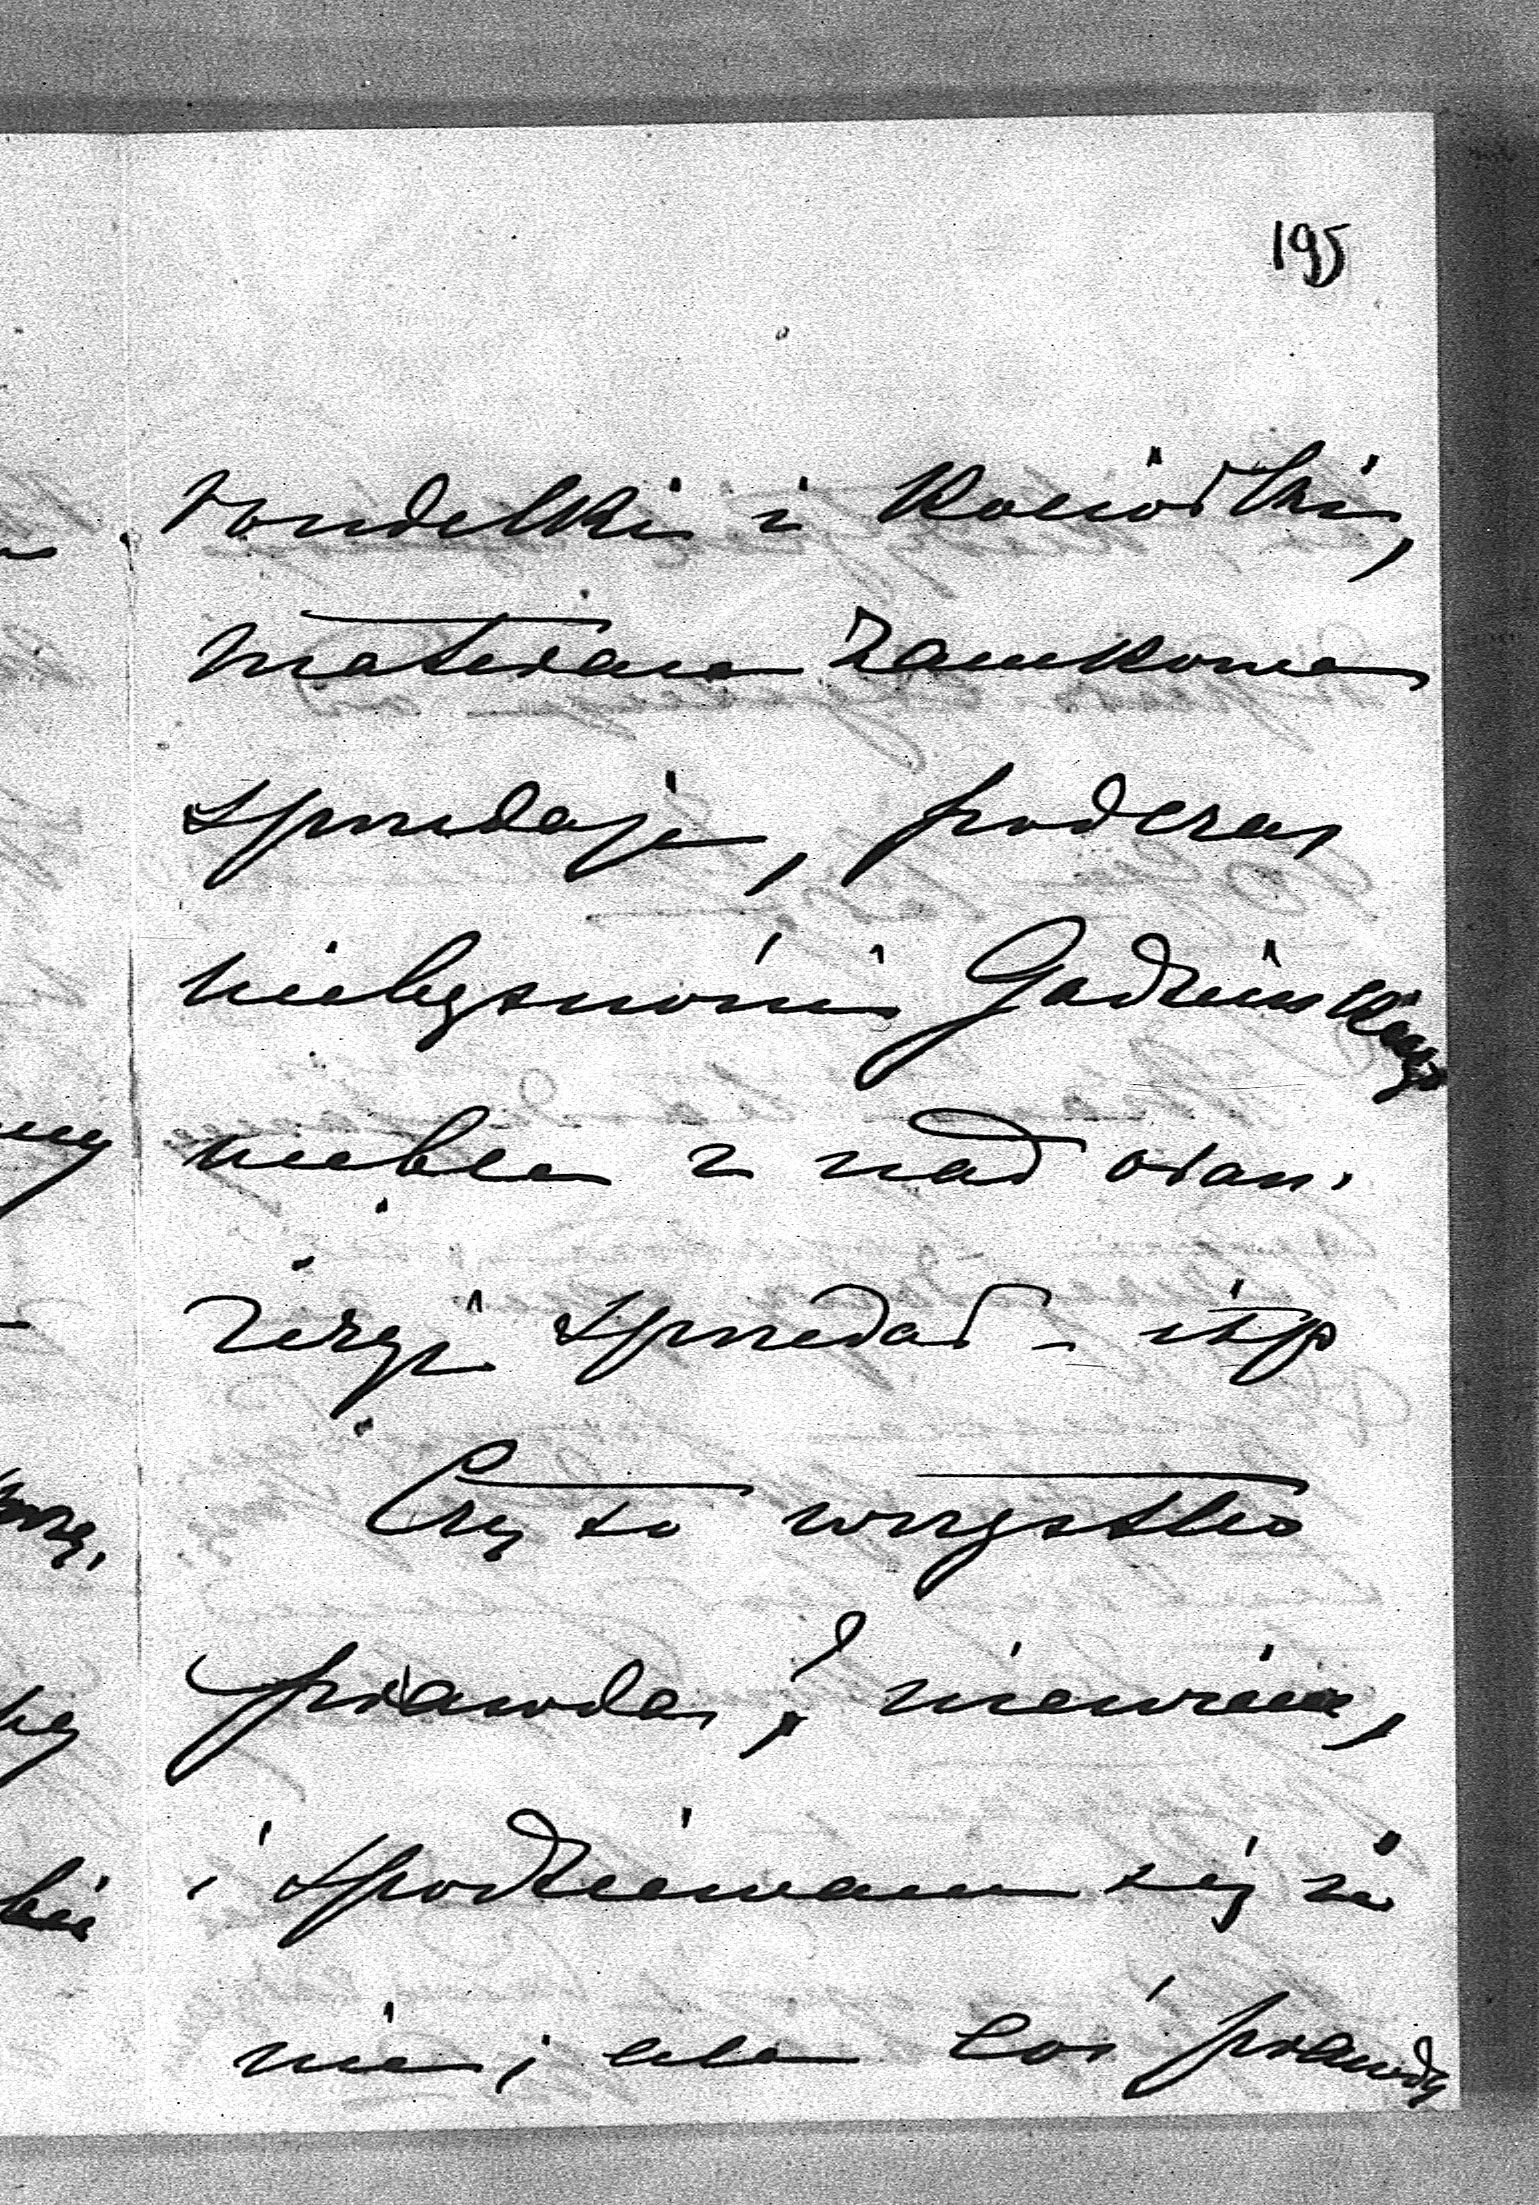 195
rondelki i kociołki,
materace zamkowe
sprzedaje, podczas
niebytności Gadzińskiego
meble z nad oran-
żeryi sprzedał – itp
Czy to wszystko
prawda, ? niewiem,
i spodziewam się że
nie; ale coś prawdy